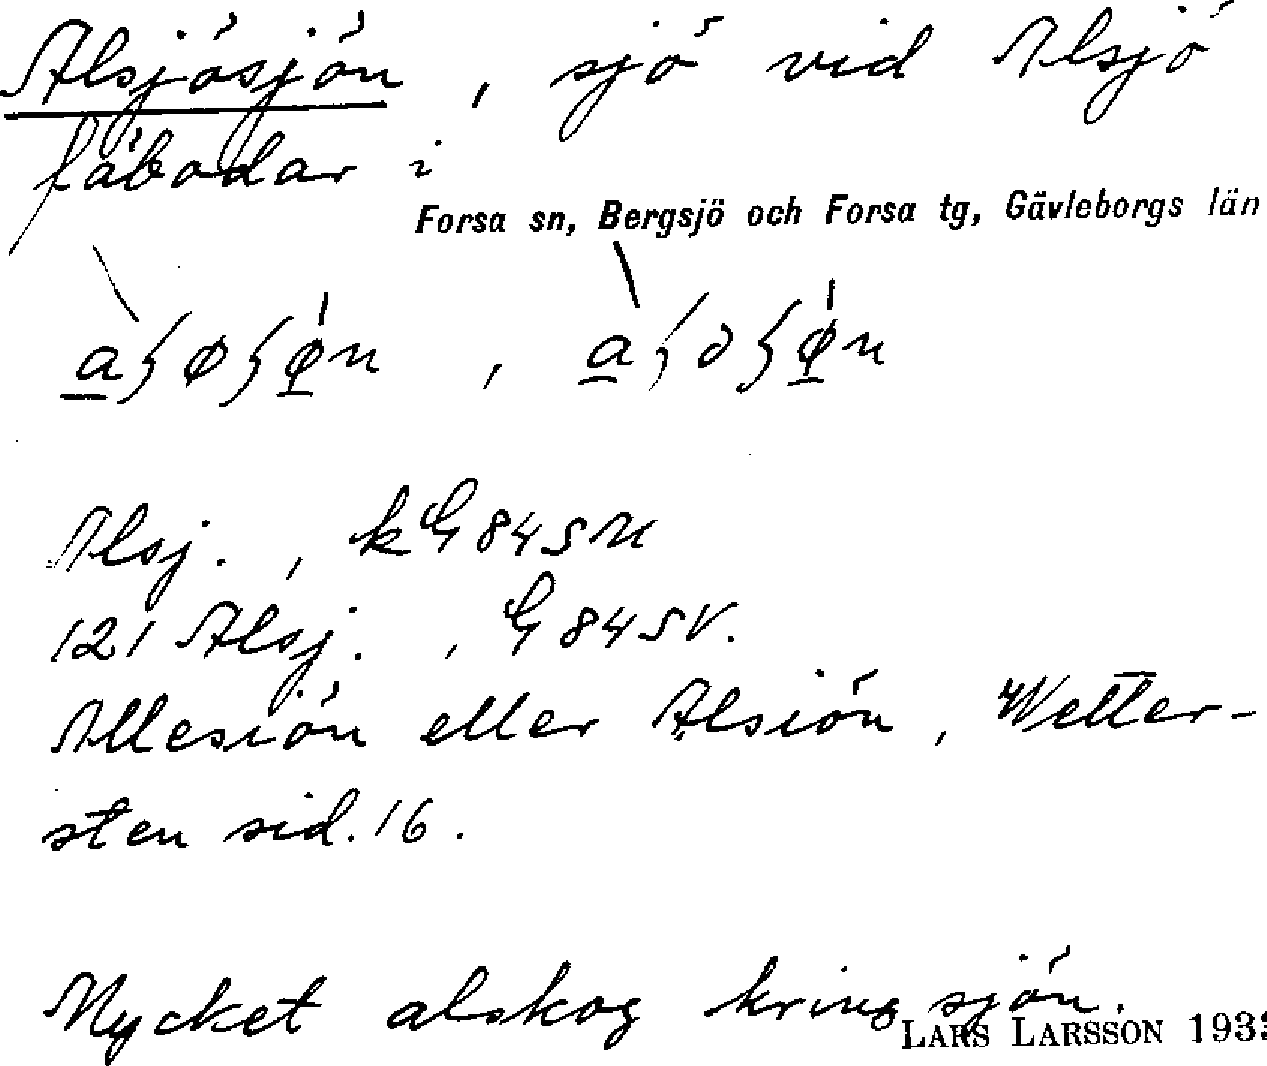 Alsjösjön, sjö vid Alsjö
fäbodar i
Forsa sn, Bergsjö och Forsa tg, Gävleborgs län
Alsj., k G 84 S N
121 Alsj., G 84 S V.
Allesiön eller Alsiön, Wetter-
sten sid. 16.
Mycket alskog kring sjön.
LARS LARSSON 193